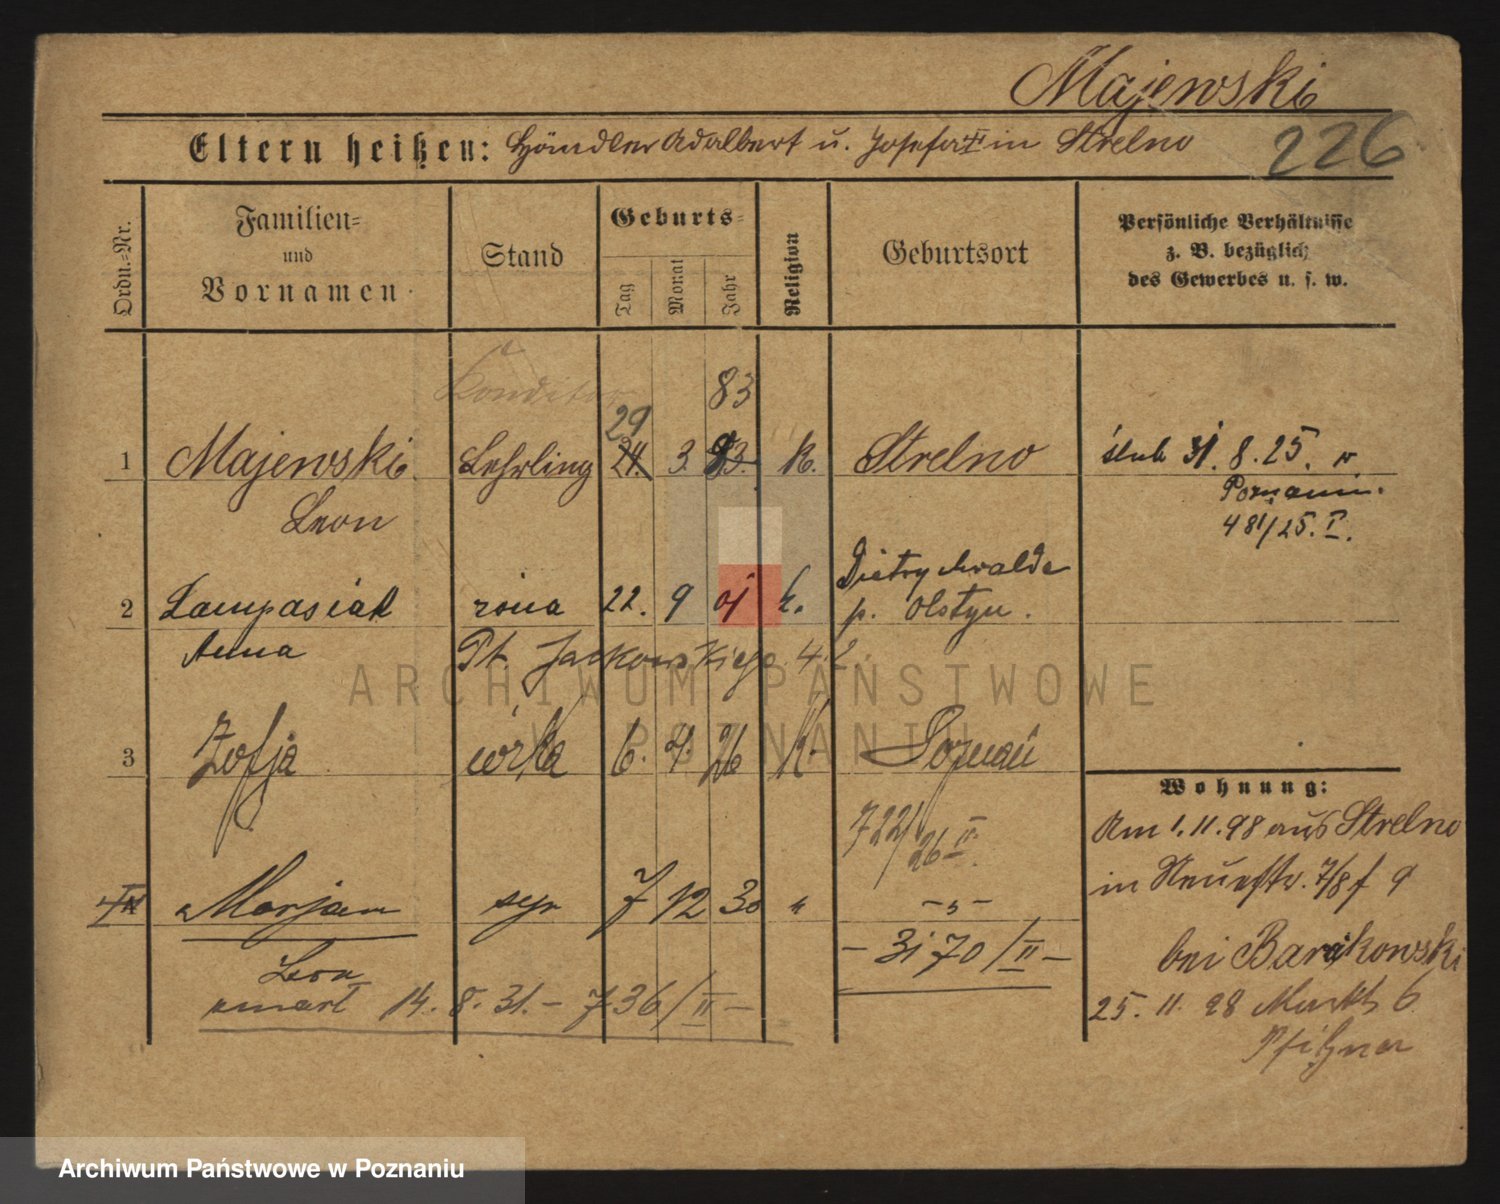 Majewski
226
Eltern heißen: Händler Adalbert u. Josefa in Strelno
Ordn.-Nr.
Familien-
und
Vornamen
Stand
Geburts-
Tag
Monat
Jahr
Religion
Geburtsort
Persönliche Verhältnisse
z. B. bezüglich
des Gewerbes u. s. w.
Konditor
83
29
1 Majewski Lehrling 24. 3. 93. k. Strelno ślub 31. 8. 25. w
Leon Poznaniu.
481/25. I.
Dietrychwalde
2 Lampasiak żona 22. 9 01 k. p. Olstyn.
Anna Pt. Jackowskiego 42
3 Zofja córka 6. 4. 26 k. Poznań
722/26 II.
4 Marjan syn 7 12 30 " -"-
Leon -3170/II-
zmarł 14. 8. 31. - 736/II -
Wohnung:
Am 1. 11. 98 aus Strelno
in Neuestr. 7/8 f 9
bei Barakowski
25. 11. 98 Markt 6
Pfitzner
ARCHIWUM PAŃSTWOWE
W POZNANIU
Archiwum Państwowe w Poznaniu